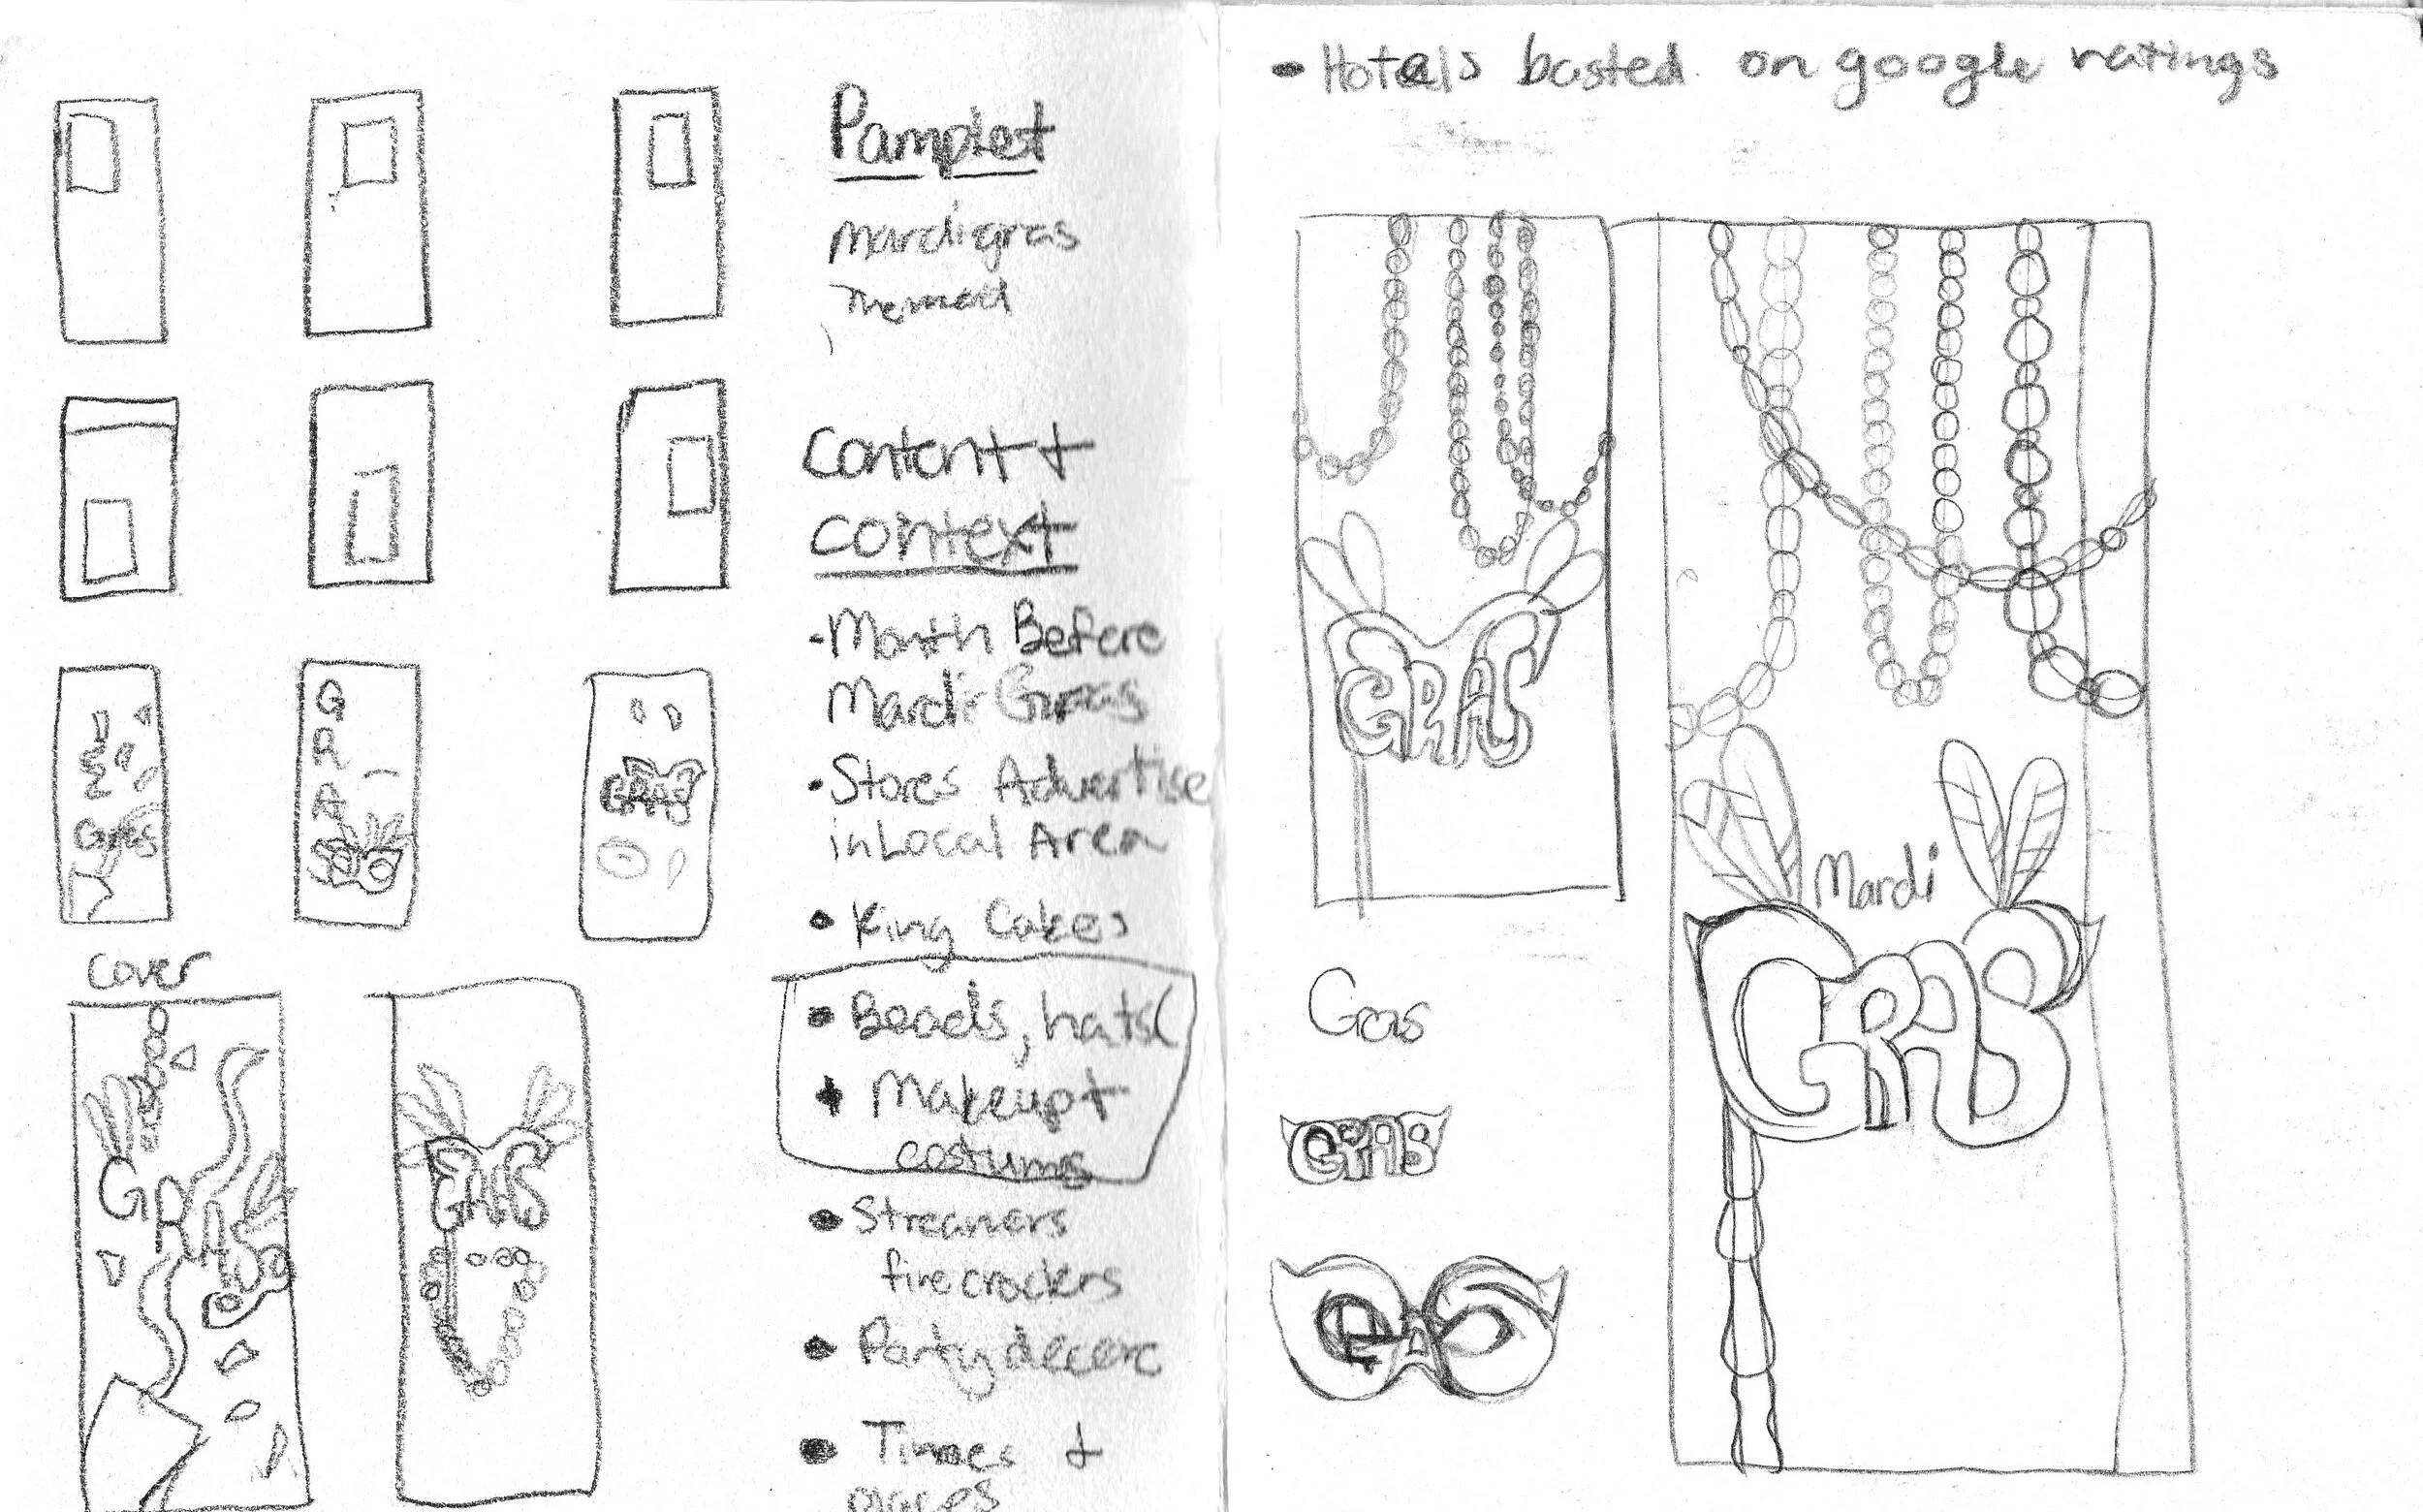 Pamplet
mardigras
Themed
Content +
context
-Month Before
Mardi Gras
• Stores Advertise
in Local Area
• King Cakes
• Beads, hats(
+ Makeup +
costums
• Streamers
firecrackers
• Party decor
• Times +
places
GRAS
GRAS
Gras
cover
GRAS
GRAS
• Hotels basted on google ratings
GRAS
Mardi
GRAS
Gras
GRAS